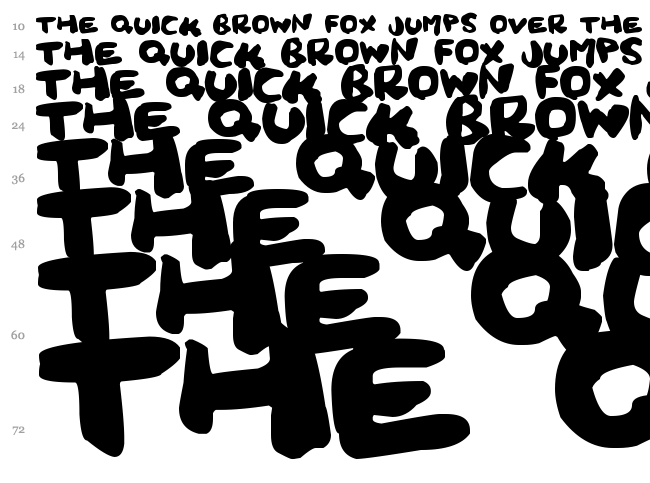 10 THE QUICK BROWN FOX JUMPS OVER THE
14 THE QUICK BROWN FOX JUMPS
18 THE QUICK BROWN FOX
24 THE QUICK BROWN
36 THE QUICK
48 THE QUIC
60 THE Q
72 THE Q